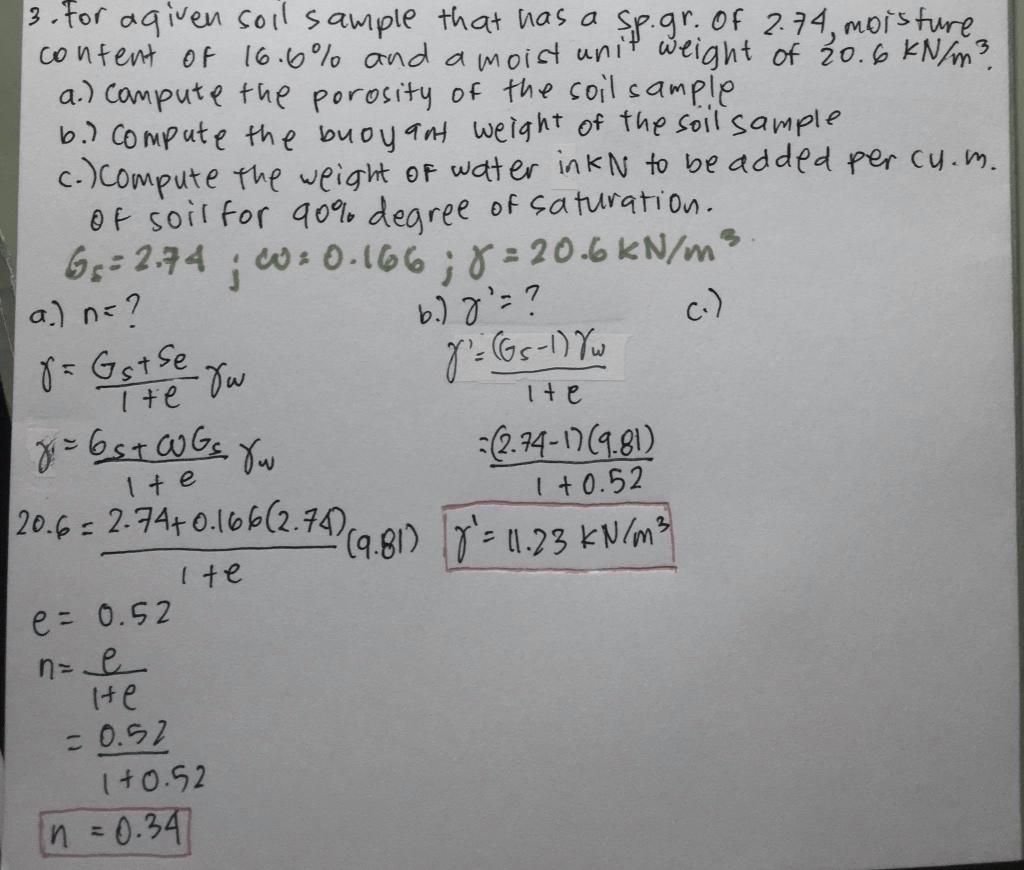 3. For a given soil sample that has a sp.gr. of 2.74, moisture
content of 16.6% and a moist unit weight of 20.6 kN/m³.
a.) Compute the porosity of the soil sample
b.) Compute the buoyant weight of the soil sample
c.) Compute the weight of water in kN to be added per cu.m.
of soil for 90% degree of saturation.
Gs = 2.74 ; ω = 0.166 ; γ = 20.6 kN/m³
a.) n = ?
γ = Gs + Se / 1 + e γw
γ = Gs + ωGs / 1 + e γw
20.6 = 2.74 + 0.166(2.74) / 1 + e (9.81)
e = 0.52
n = e / 1+e
= 0.52 / 1+0.52
n = 0.34
b.) γ' = ?
γ' = (Gs-1)γw / 1+e
= (2.74-1)(9.81) / 1+0.52
γ' = 11.23 kN/m³
c.)